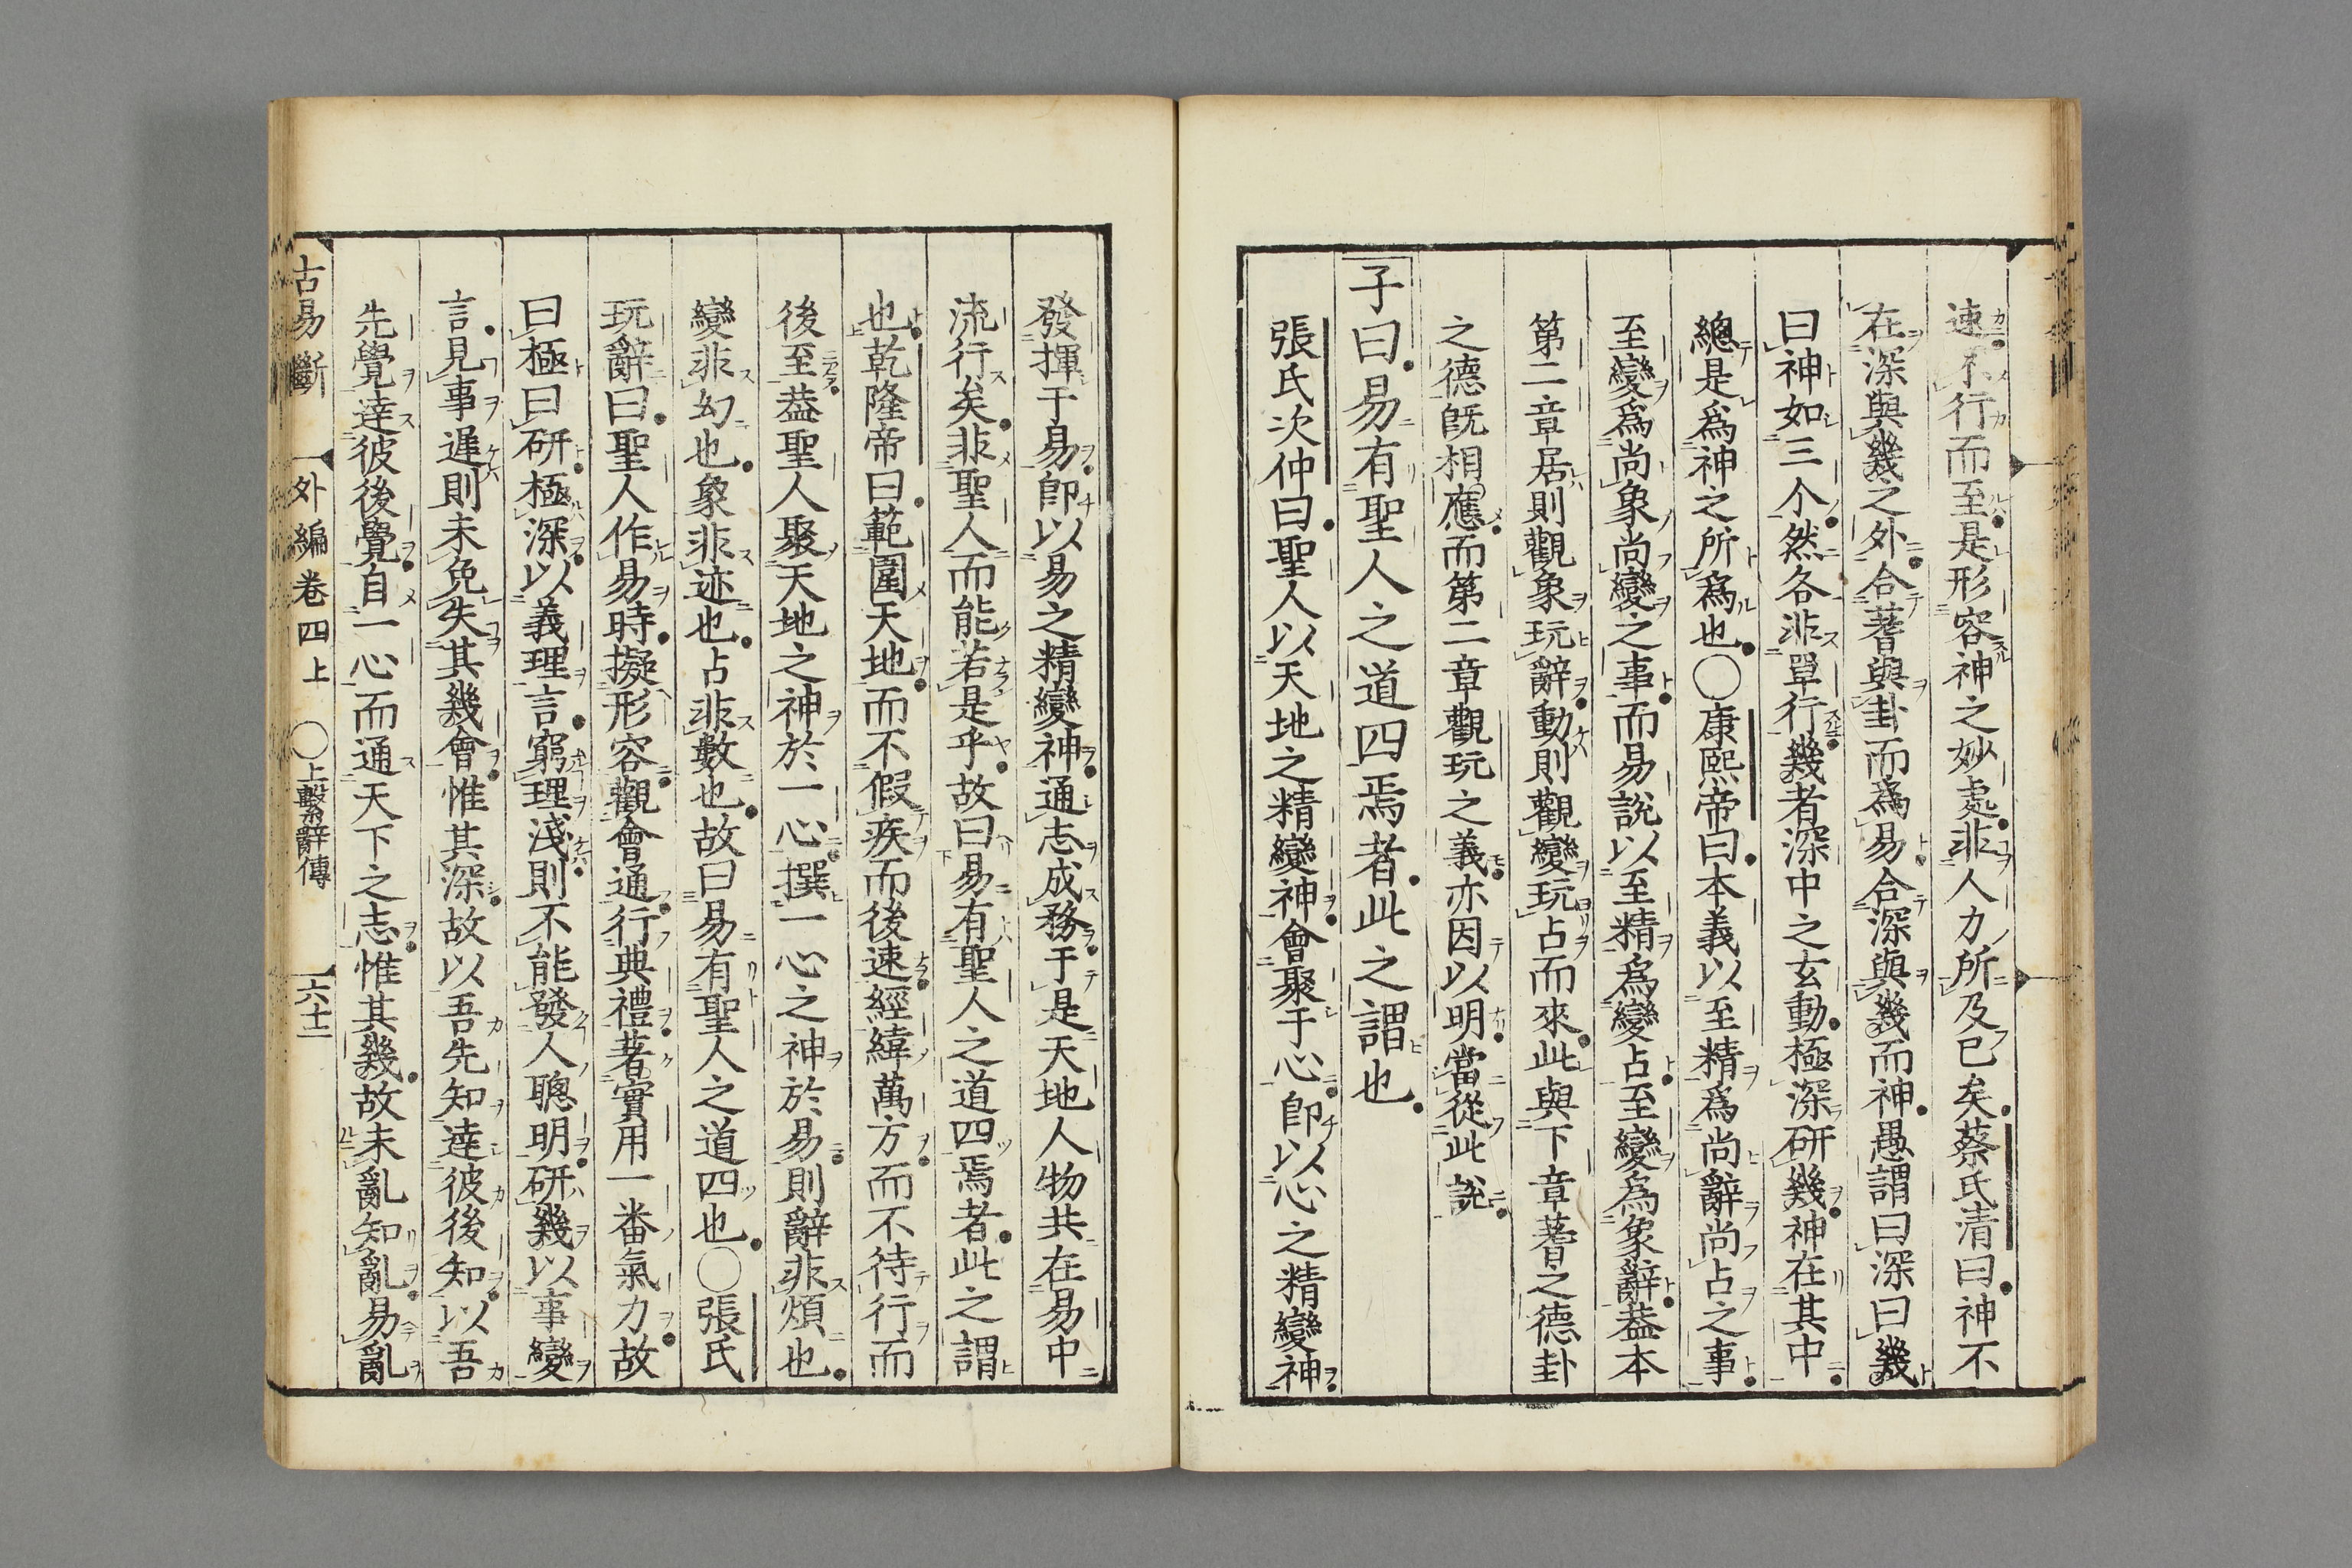 速不行而至是形容神之妙處非人力所及已矣蔡氏清曰神不
在深與幾之外合蓍與卦而為易合深與幾而神愚謂曰深曰幾
曰神如三个然各非單行幾者深中之玄動極深研幾神在其中
總是為神之所為也〇康熙帝曰本義以至精為尚辭尚占之事
至變為尚象尚變之事而易說以至精為變占至變為象辭葢本
第二章居則觀象玩辭動則觀變玩占而來此與下章蓍之德卦
之德旣相應而第二章觀玩之義亦因以明當從此說
子曰易有聖人之道四焉者此之謂也
張氏次仲曰聖人以天地之精變神會聚于心卽以心之精變神
發揮于易卽以易之精變神通志成務于是天地人物共在易中
流行矣非聖人而能若是乎故曰易有聖人之道四焉者此之謂
也乾隆帝曰範圍天地而不假疾而後速經緯萬方而不待行而
後至葢聖人聚天地之神於一心撰一心之神於易則辭非煩也
變非幻也象非迹也占非數也故曰易有聖人之道四也〇張氏
玩辭曰聖人作易時擬形容觀會通行典禮著實用一番氣力故
曰極曰研極深以義理言窮理淺則不能發人聰明研幾以事變
言見事遲則未免失其幾會惟其深故以吾先知達彼後知以吾
先覺達彼後覺自一心而通天下之志惟其幾故未亂知亂易亂
古易斷 外編卷四上 〇上繫辭傳 六十二